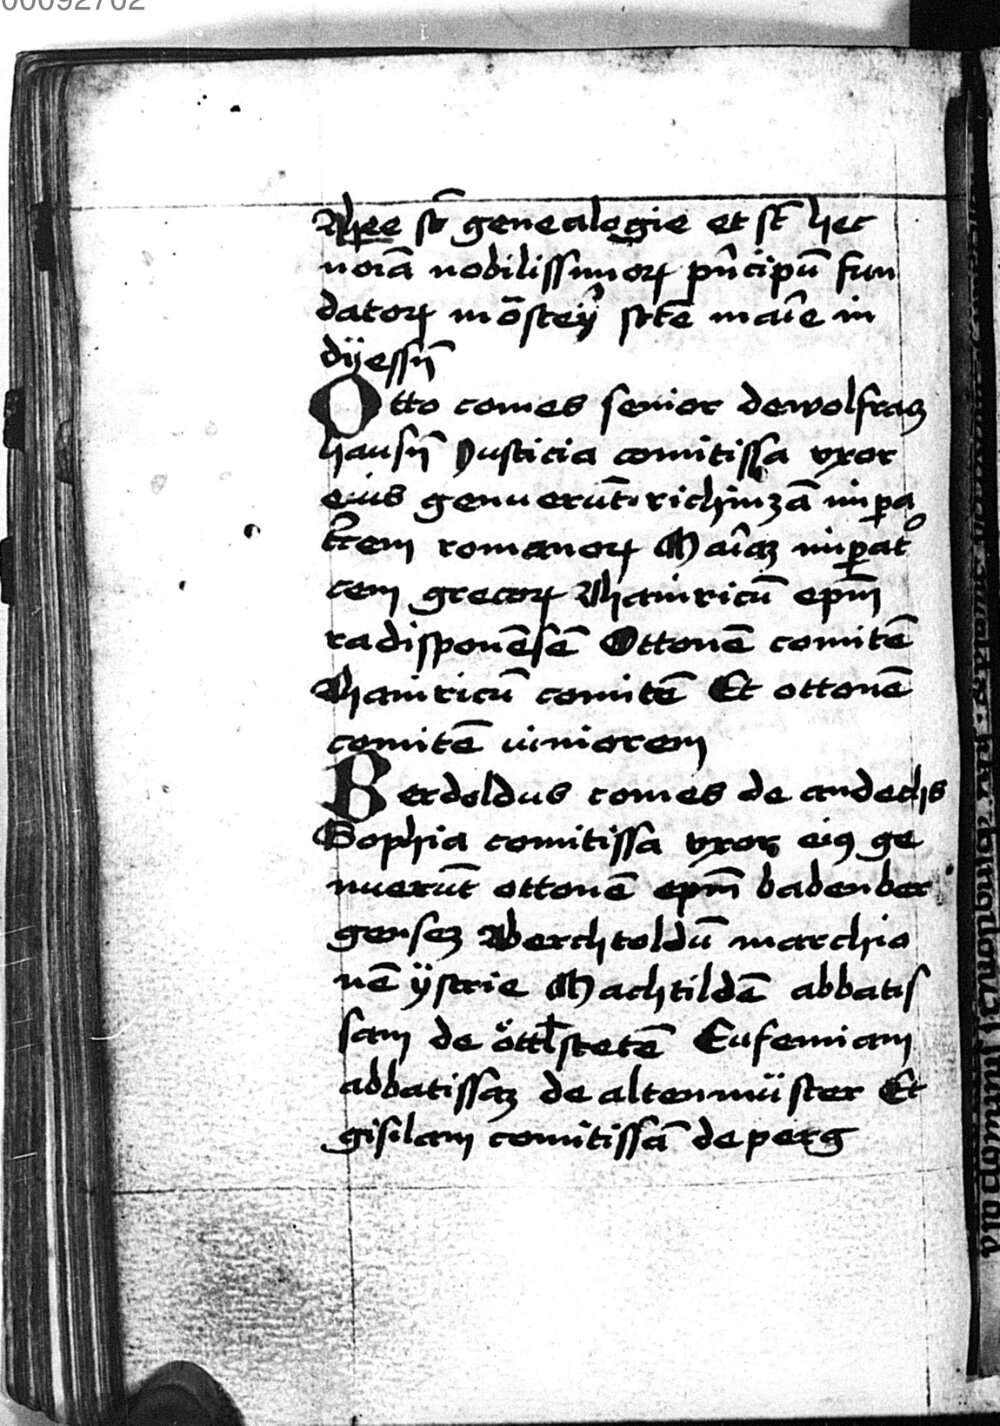 00092702
Hee st̄ genealogie et st̄ hec
noīa nobilissimorꝝ pn̄cipū fun
datorꝝ mōsteÿ sc̄te maīe in
dÿessn̄
Otto comes senior de wolfraꝫ
hausn̄ Justicia comitissa vxor
eius genuerūt richinzā impa
t̄cem romanorꝝ Maīaꝫ imꝑatͦ
cem grecorꝝ Hainricū ep̄m
radisponēsē Ottonē comitē
Hainricū comitē Et ottonē
comitē iuniorem
Berdoldus comes de andechs
Sophia comitissa vxor eiꝰ ge
nuerūt ottonē ep̄m babenber
genseꝫ Berchtoldū marchio
nē ÿstrie Machtildē abbatis
sam de ött̄lstetē Eufemiam
abbatissaꝫ de altenmüster Et
gisilam comitissā de perg